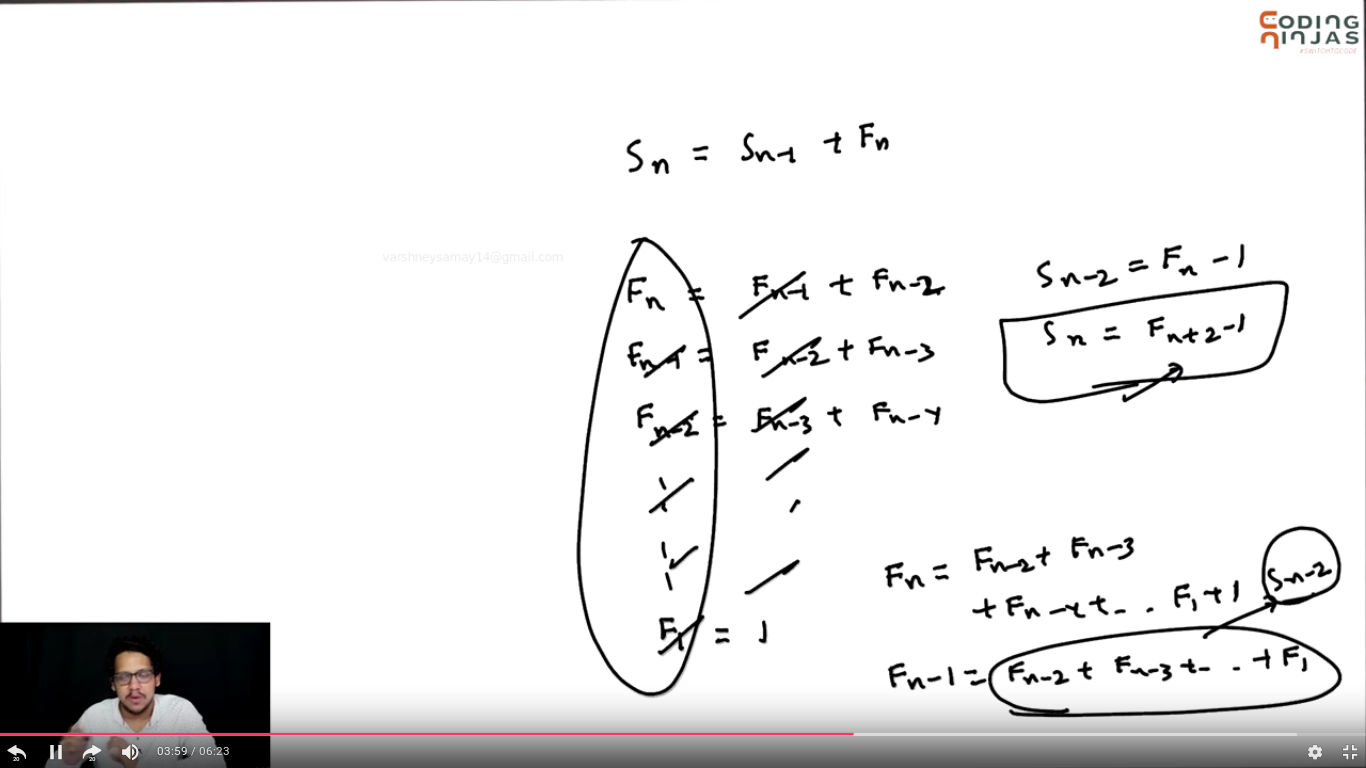 CODING
NINJAS
#SWITCHTOCODE
Sn = Sn-1 + Fn
varshneysamay14@gmail.com
Fn = Fn-1 + Fn-2
Fn-1 = Fn-2 + Fn-3
Fn-2 = Fn-3 + Fn-4
F1 = 1
Sn-2 = Fn - 1
Sn = Fn+2 - 1
Fn = Fn-2 + Fn-3
+ Fn-4 + - . . F1 + 1
Sn-2
Fn - 1 = Fn-2 + Fn-3 + - . . + F1
20
20
03:59 / 06:23